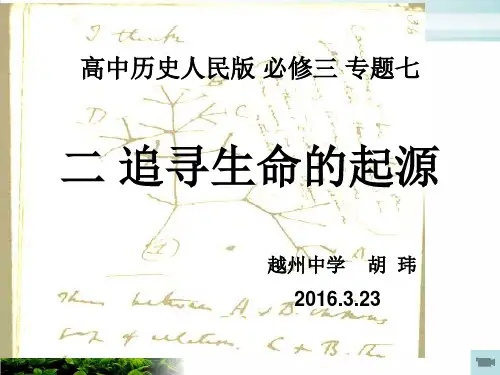 I think
高中历史人民版 必修三 专题七
二 追寻生命的起源
越州中学 胡 玮
2016.3.23
Thus between A & B. immense
gap of relation. C & B. The